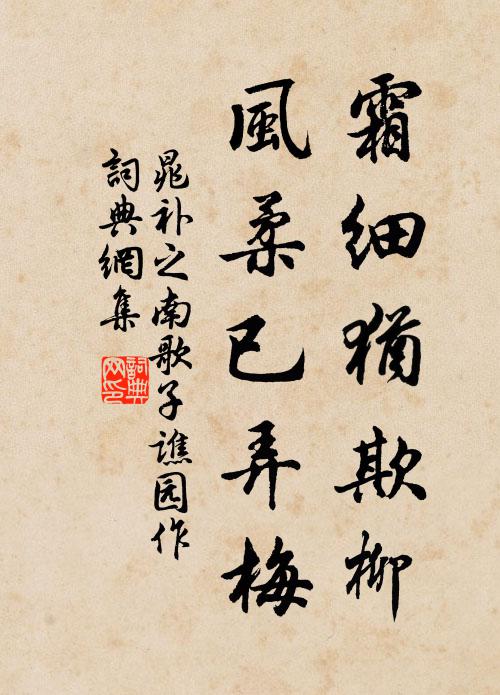 霜细猶欺柳
風柔已弄梅
晁补之南歌子譙园作
詞典網集
詞典網印